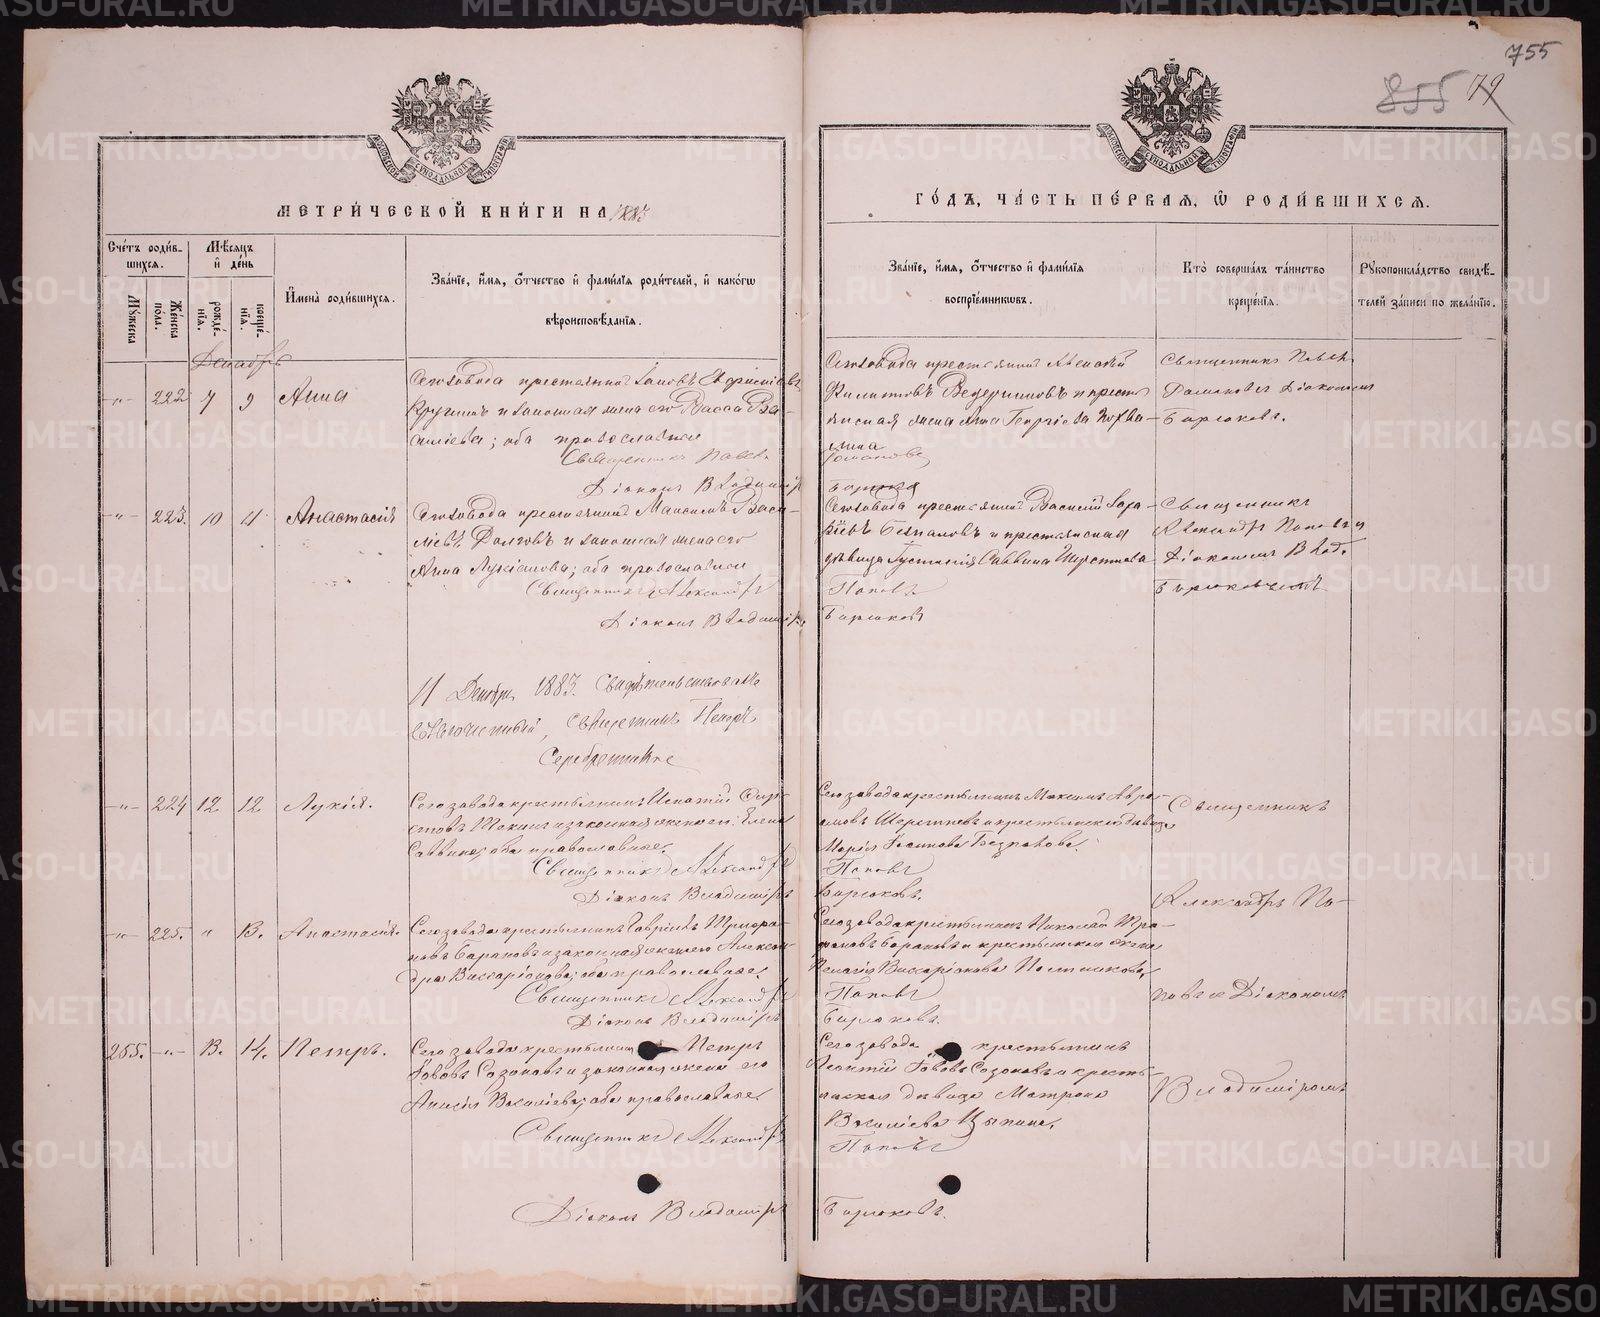 755
855 79
МЕТРИ́ЧЕСКОЙ КНИ́ГИ НА 1883
ГО́ДЪ, ЧА́СТЬ ПЕ́РВАЯ, Ѡ РОДИ́ВШИХСЯ.
Сче́тъ роди́в-
шихся.
Мꙋ́жеска
Же́нска
по́ла.
Мѣ́сяцъ
и҆ де́нь
рожде́-
нїя.
креще́-
нїя.
И҆мена̀ роди́вшихся.
Зва́нїе, и҆́мя, ѻ҆́тчество и҆ фамѝлїя роди́телей, и҆ како́гѡ
вѣроисповѣ́данїя.
Зва́нїе, и҆́мя, ѻ҆́тчество и҆ фамѝлїя
воспрїе́мникѡвъ.
Кто̀ соверша́лъ та́инство
креще́нїя.
Рꙋкоприкла́дство свидѣ́-
телей за́писи по жела́нїю.
Декабрь
-"- 222 7 9 Анна
Сего завода крестьянинъ
и законная жена его Васса Ва-
силіева; оба православные
Священникъ Павелъ
Діаконъ Владиміръ
Сего завода крестьянинъ Алексѣй
Филиповъ Ведерниковъ и кресть-
янская жена Анна Георгіева
Романовъ
Бирюковъ
Священникъ Павелъ
Романовъ Діакономъ
Бирюковъ.
-"- 223. 10 11 Анастасія
Сего завода крестьянинъ Максимъ Васи-
ліевъ Долговъ и законная жена его
Анна Лукіанова; оба православные
Священникъ Александръ
Діаконъ Владиміръ
Сего завода крестьянинъ Василій
и крестьянская
дѣвица Саввина Шерстнева
Поповъ
Бирюковъ
Священникъ
Александръ Поповъ и
Діакономъ Влад.
Бирюковымъ
11 Декабря 1883. Свидѣтельствовалъ
Благочинный, Священникъ Петръ
Серебренников
-"- 224 12 12 Лукія.
Сего завода крестьянинъ Игнатій
и законная жена его Елена
Саввина; оба православные.
Священникъ Александръ
Діаконъ Владиміръ
Сего завода крестьянинъ Максимъ Авра-
амовъ Шерстневъ и крестьянская дѣвица
Марія
Поповъ
Бирюковъ.
Священникъ
Александръ По-
-"- 225. " 13. Анастасія.
Сего завода крестьянинъ Гавріилъ
Барановъ и законная жена его Алексан-
дра Виссаріонова; оба православные.
Священникъ Александръ
Діаконъ Владиміръ
Сего завода крестьянинъ Николай Три-
фоновъ Барановъ и крестьянская жена
Пелагія Виссаріонова Постникова.
Поповъ
Бирюковъ.
повъ и Діакономъ
255. -"- 13. 14. Петръ.
Сего завода крестьянинъ Петръ
Іововъ Созоновъ и законная жена его
Анисія Василіева; оба православные
Священникъ Александръ
Діаконъ Владиміръ
Сего завода крестьянинъ
Леонтій Іововъ Созоновъ и кресть-
янская дѣвица Матрона
Василіева Цыпина.
Поповъ
Бирюковъ.
Владиміромъ
METRIKI.GASO-URAL.RU